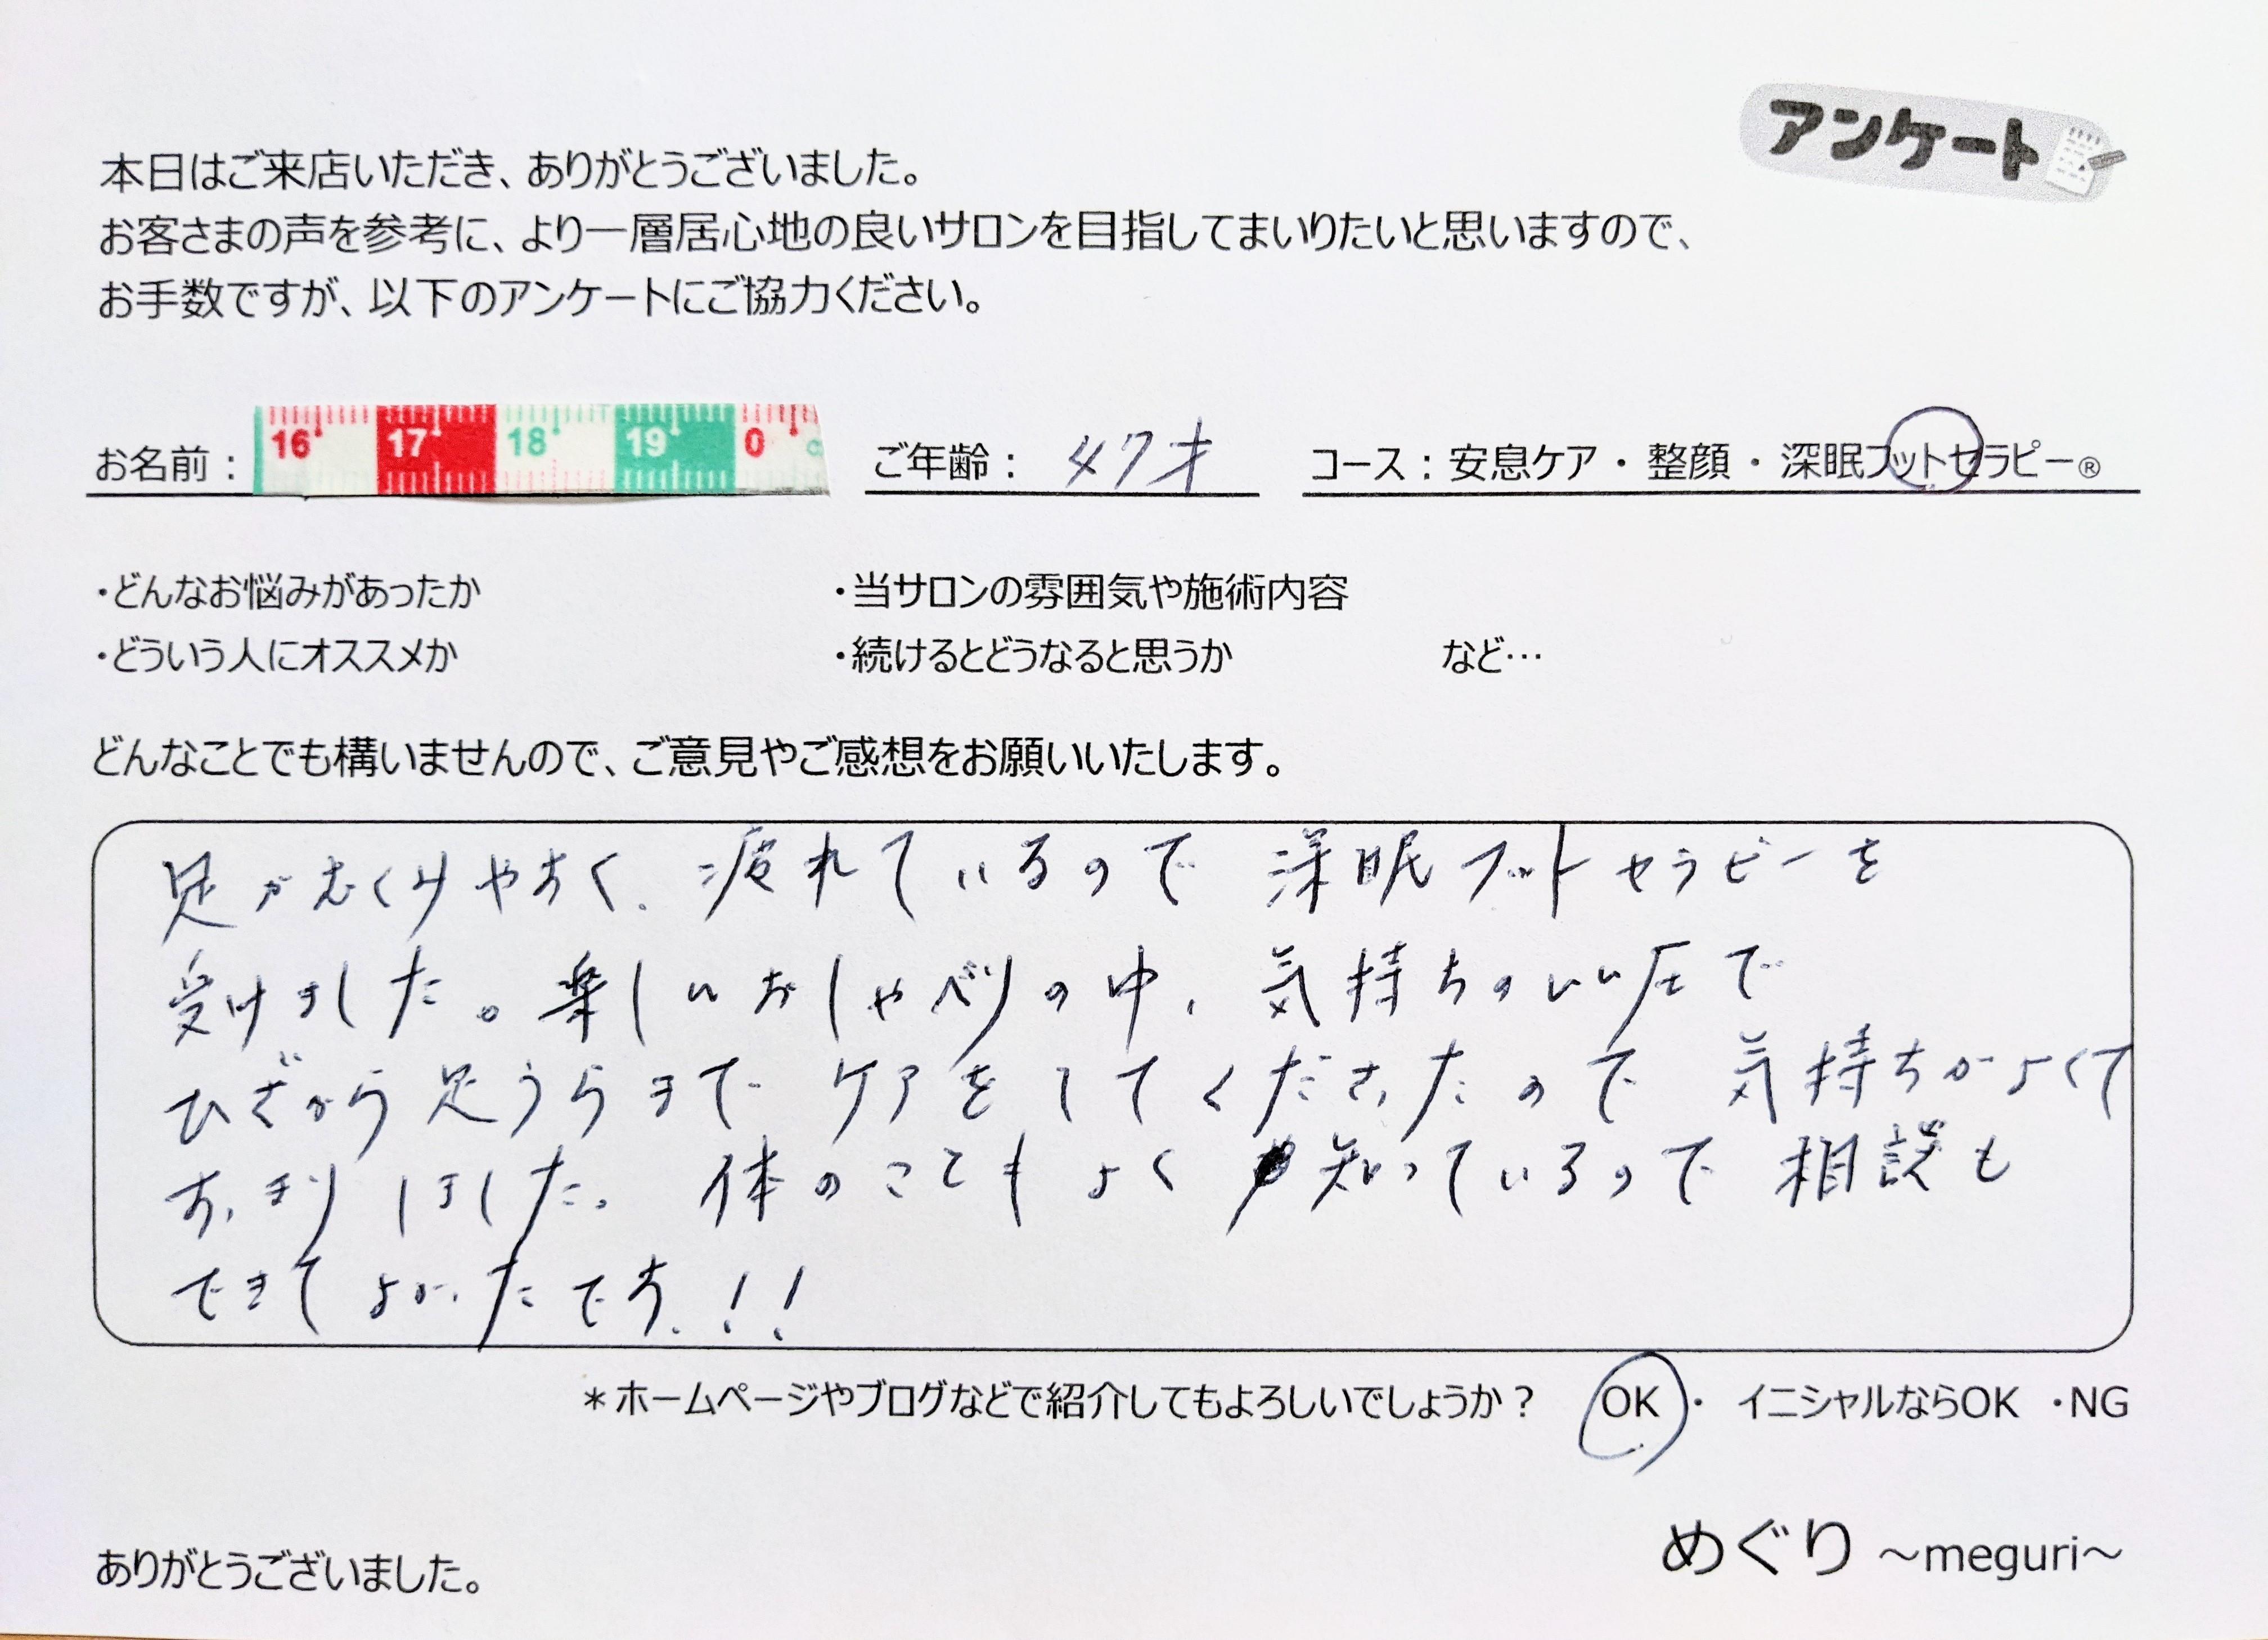 アンケート
本日はご来店いただき、ありがとうございました。
お客さまの声を参考に、より一層居心地の良いサロンを目指してまいりたいと思いますので、
お手数ですが、以下のアンケートにご協力ください。
お名前： 16 17 18 19 0 ご年齢： 47才 コース：安息ケア・整顔・深眠フットセラピー®
・どんなお悩みがあったか ・当サロンの雰囲気や施術内容
・どういう人にオススメか ・続けるとどうなると思うか など…
どんなことでも構いませんので、ご意見やご感想をお願いいたします。
足がむくみやすく、疲れているので 深眠フットセラピーを
受けました。楽しいおしゃべりの中、気持ちのいい圧で
ひざから足うらまで ケアをしてくださったので 気持ちがよくて
すっきりしました。体のこともよく知っているので 相談も
できてよかったです!!
＊ホームページやブログなどで紹介してもよろしいでしょうか？ OK ・ イニシャルならOK ・NG
めぐり ～meguri～
ありがとうございました。